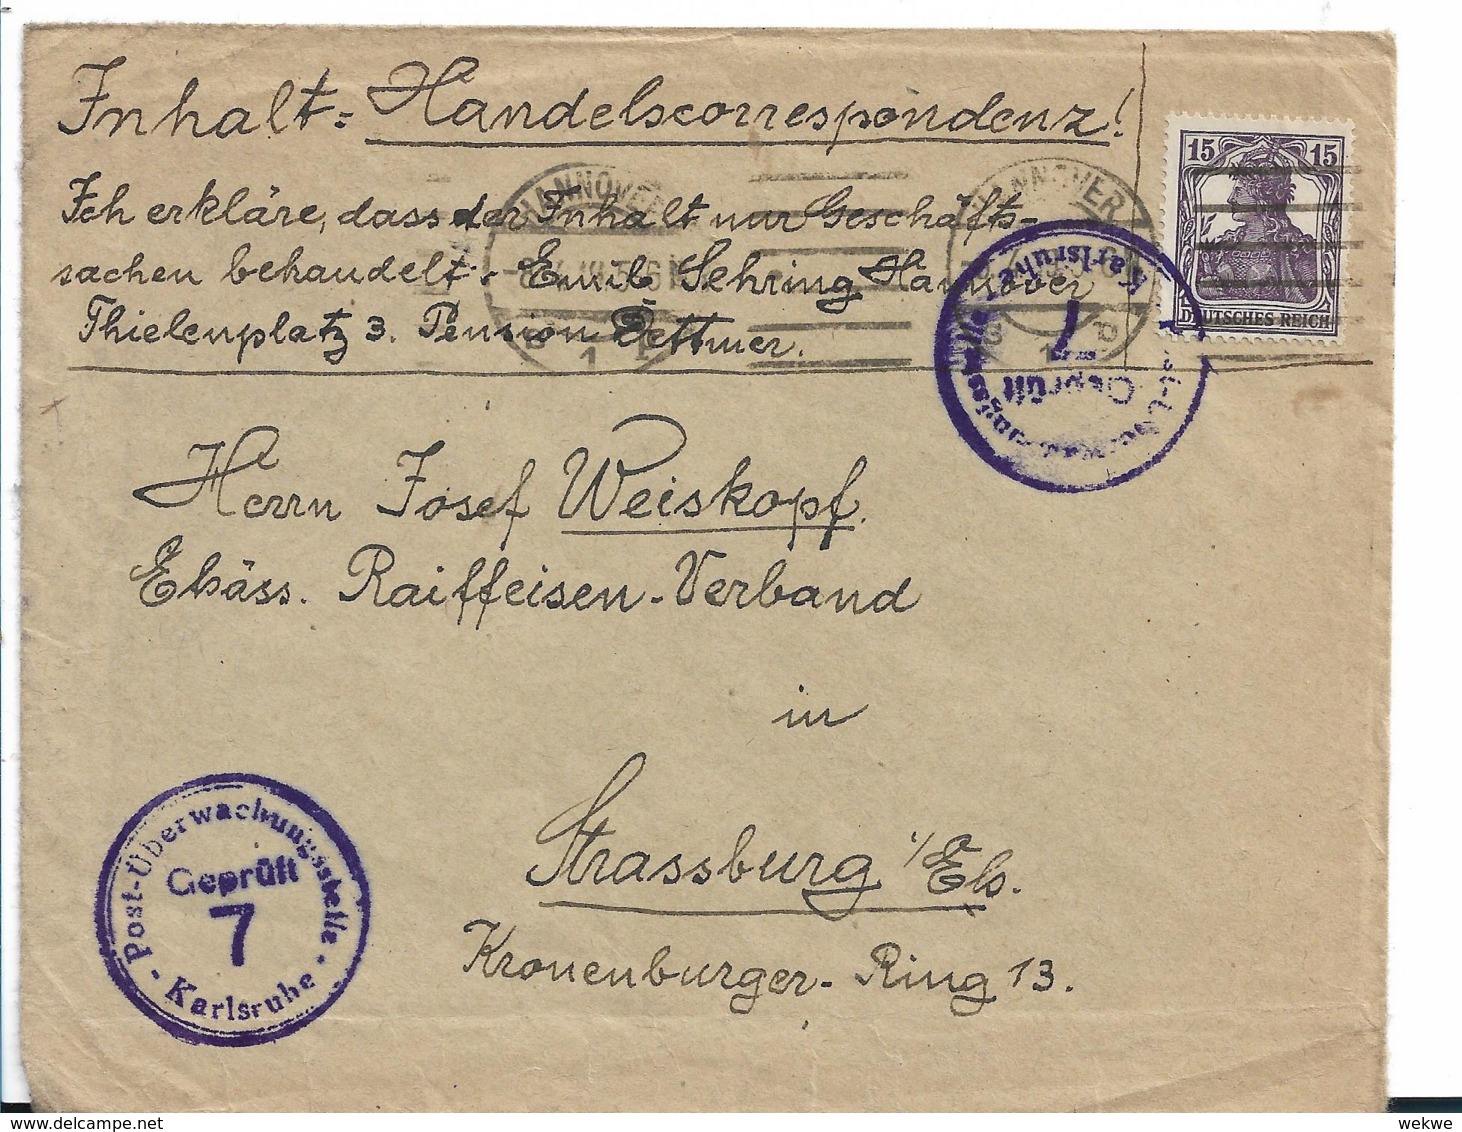 Inhalt = Handelscorrespondenz!
Ich erkläre, dass der Inhalt nur Geschäfts-
sachen behandelt. Emil Sehring Hannover
Thielenplatz 3. Pension Dettmer.
15 15
DEUTSCHES REICH
HANNOVER
1
HANNOVER
1
Karlsruhe
7
Geprüft
Herrn Josef Weiskopf.
Elsäss. Raiffeisen-Verband
in
Strassburg i/Els.
Kronenburger-Ring 13.
Post-Überwachungsstelle
Geprüft
7
Karlsruhe
wekwe